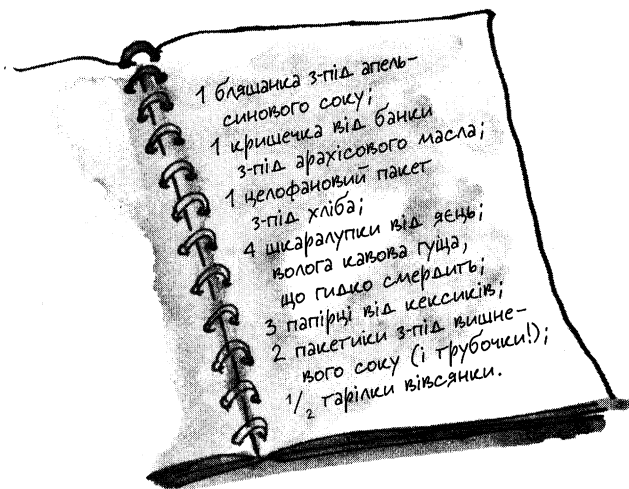 1 бляшанка з-під апель-
синового соку;
1 кришечка від банки
з-під арахісового масла;
1 целофановий пакет
з-під хліба;
4 шкаралупки від яєць;
волога кавова гуща,
що гидко смердить;
3 папірці від кексиків;
2 пакетики з-під вишне-
вого соку (і трубочки!);
1/2 тарілки вівсянки.